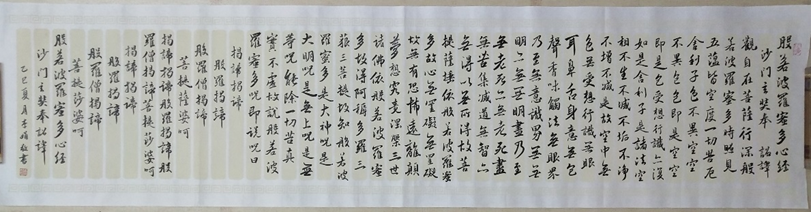 般若波羅蜜多心經
沙門玄奘奉 詔譯
觀自在菩薩行深般
若波羅蜜多時照見
五蘊皆空度一切苦厄
舍利子色不異空空
不異色色即是空空
即是色受想行識亦復
如是舍利子是諸法空
相不生不滅不垢不淨
不增不減是故空中無
色無受想行識無眼
耳鼻舌身意無色
聲香味觸法無眼界
乃至無意識界無無
明亦無無明盡乃至
無老死亦無老死盡
無苦集滅道無智亦
無得以無所得故菩
提薩埵依般若波羅蜜
多故心無罣礙無罣礙
故無有恐怖遠離顛倒
夢想究竟涅槃三世
諸佛依般若波羅蜜
多故得阿耨多羅三
藐三菩提故知般若波
羅蜜多是大神咒是
大明咒是無上咒是無
等等咒能除一切苦真
實不虛故說般若波
羅蜜多咒即說咒曰
揭諦揭諦
般羅揭諦
般羅僧揭諦
菩提薩婆呵
揭諦揭諦般羅揭諦般
羅僧揭諦菩提莎婆呵
揭諦揭諦
般羅揭諦
般羅僧揭諦
菩提莎婆呵
般若波羅蜜多心經
沙門玄奘奉詔譯
乙巳夏月 書